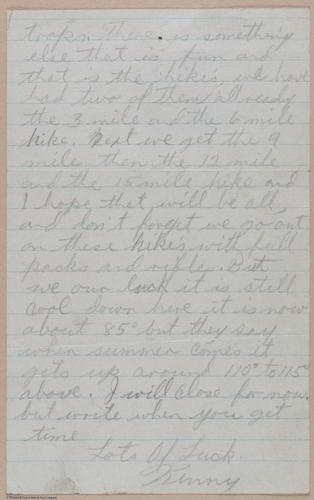 traps. There is something
else that is fun and
that is the hikes, we have
had two of them already
the 3 mile and the 6 mile
hike. Next we get the 9
mile then the 12 mile
and the 15 mile hike and
I hope that will be all,
and don't forget we go out
on these hikes with full
packs and rifles. But
we our luck it is still
cool down here it is now
about 85° but they say
when summer comes it
gets up around 110° to 115°
above. I will close for now.
but write when you get
time
Lots Of Luck.